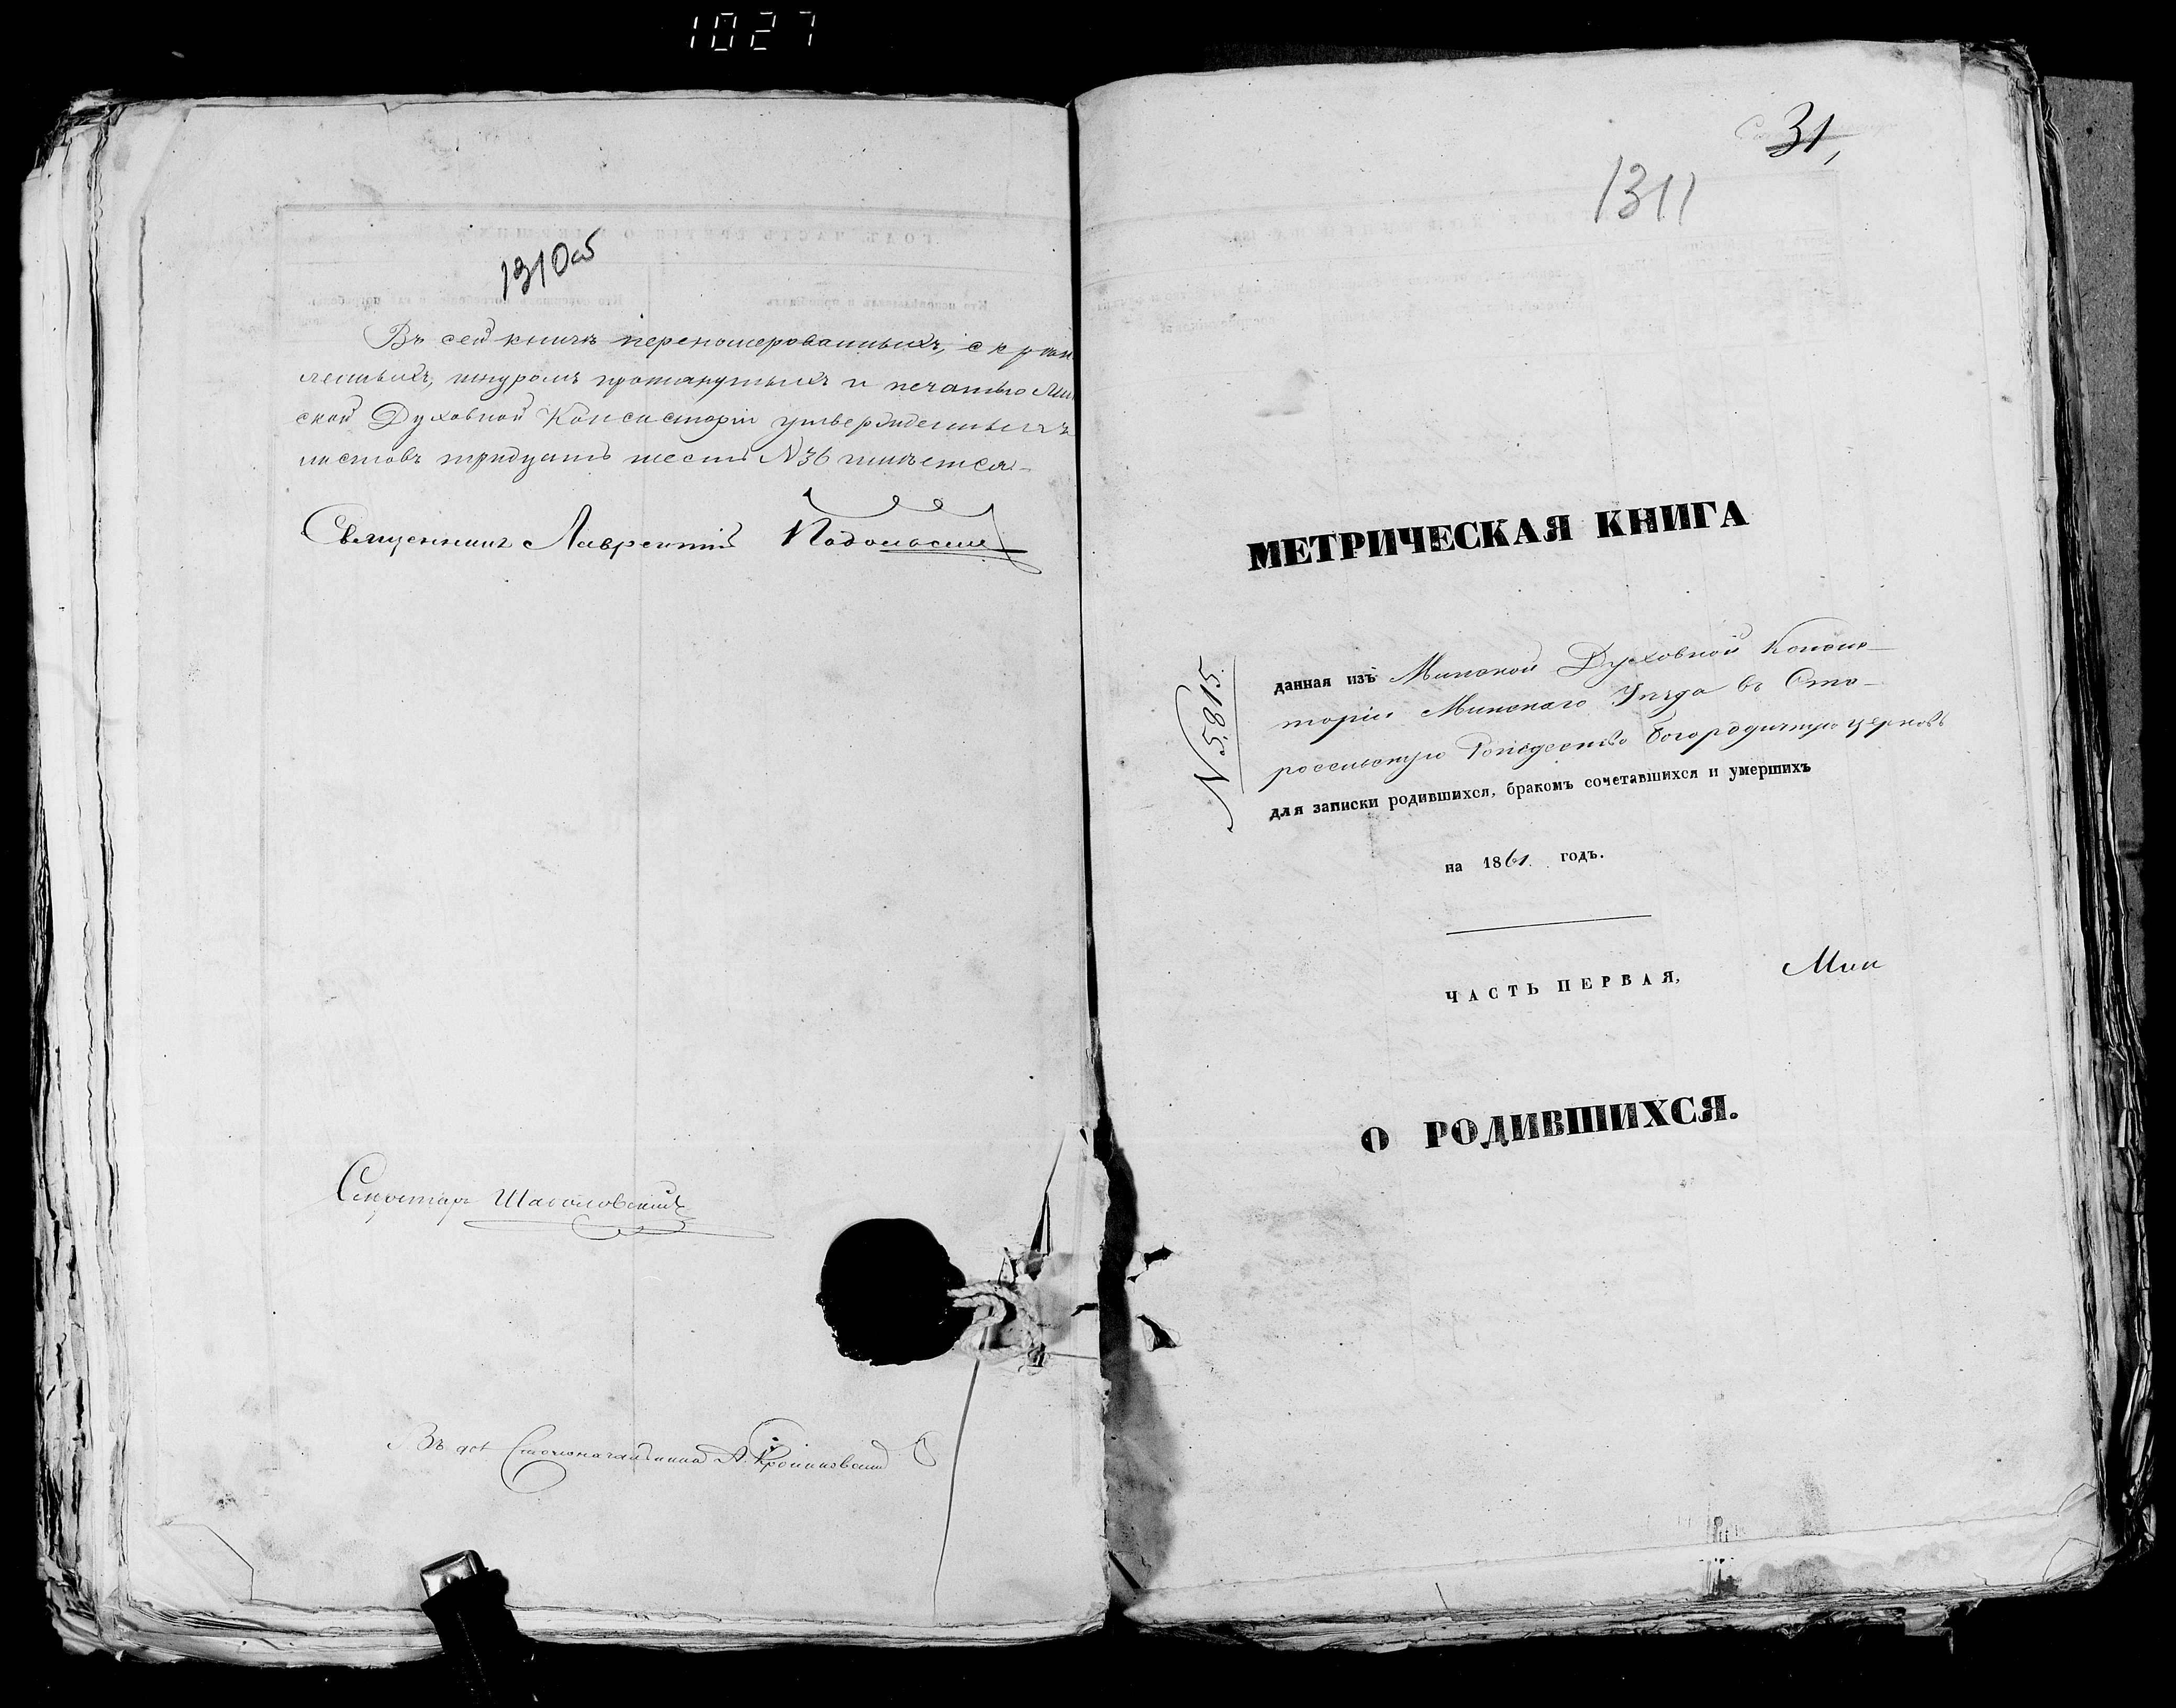 1027
1310об
Въ сей книгѣ перенумерованныхъ, скрѣп
ленныхъ, шнуромъ протянутыхъ и печатью Мин
ской Духовной Консисторіи утвержденныхъ
листовъ тридцать шесть N36 имѣется
Священникъ Лаврентій
Секретарь
Въ дол Столоначальника А.
31
1311
МЕТРИЧЕСКАЯ КНИГА
N 5,815.
данная изъ Минской Духовной Консис
торіи Минскаго Уѣзда въ Ста
росельскую Рождество Богородичную церковь
для записки родившихся, бракомъ сочетавшихся и умершихъ
на 1861. годъ.
ЧАСТЬ ПЕРВАЯ,
Мин
О РОДИВШИХСЯ.